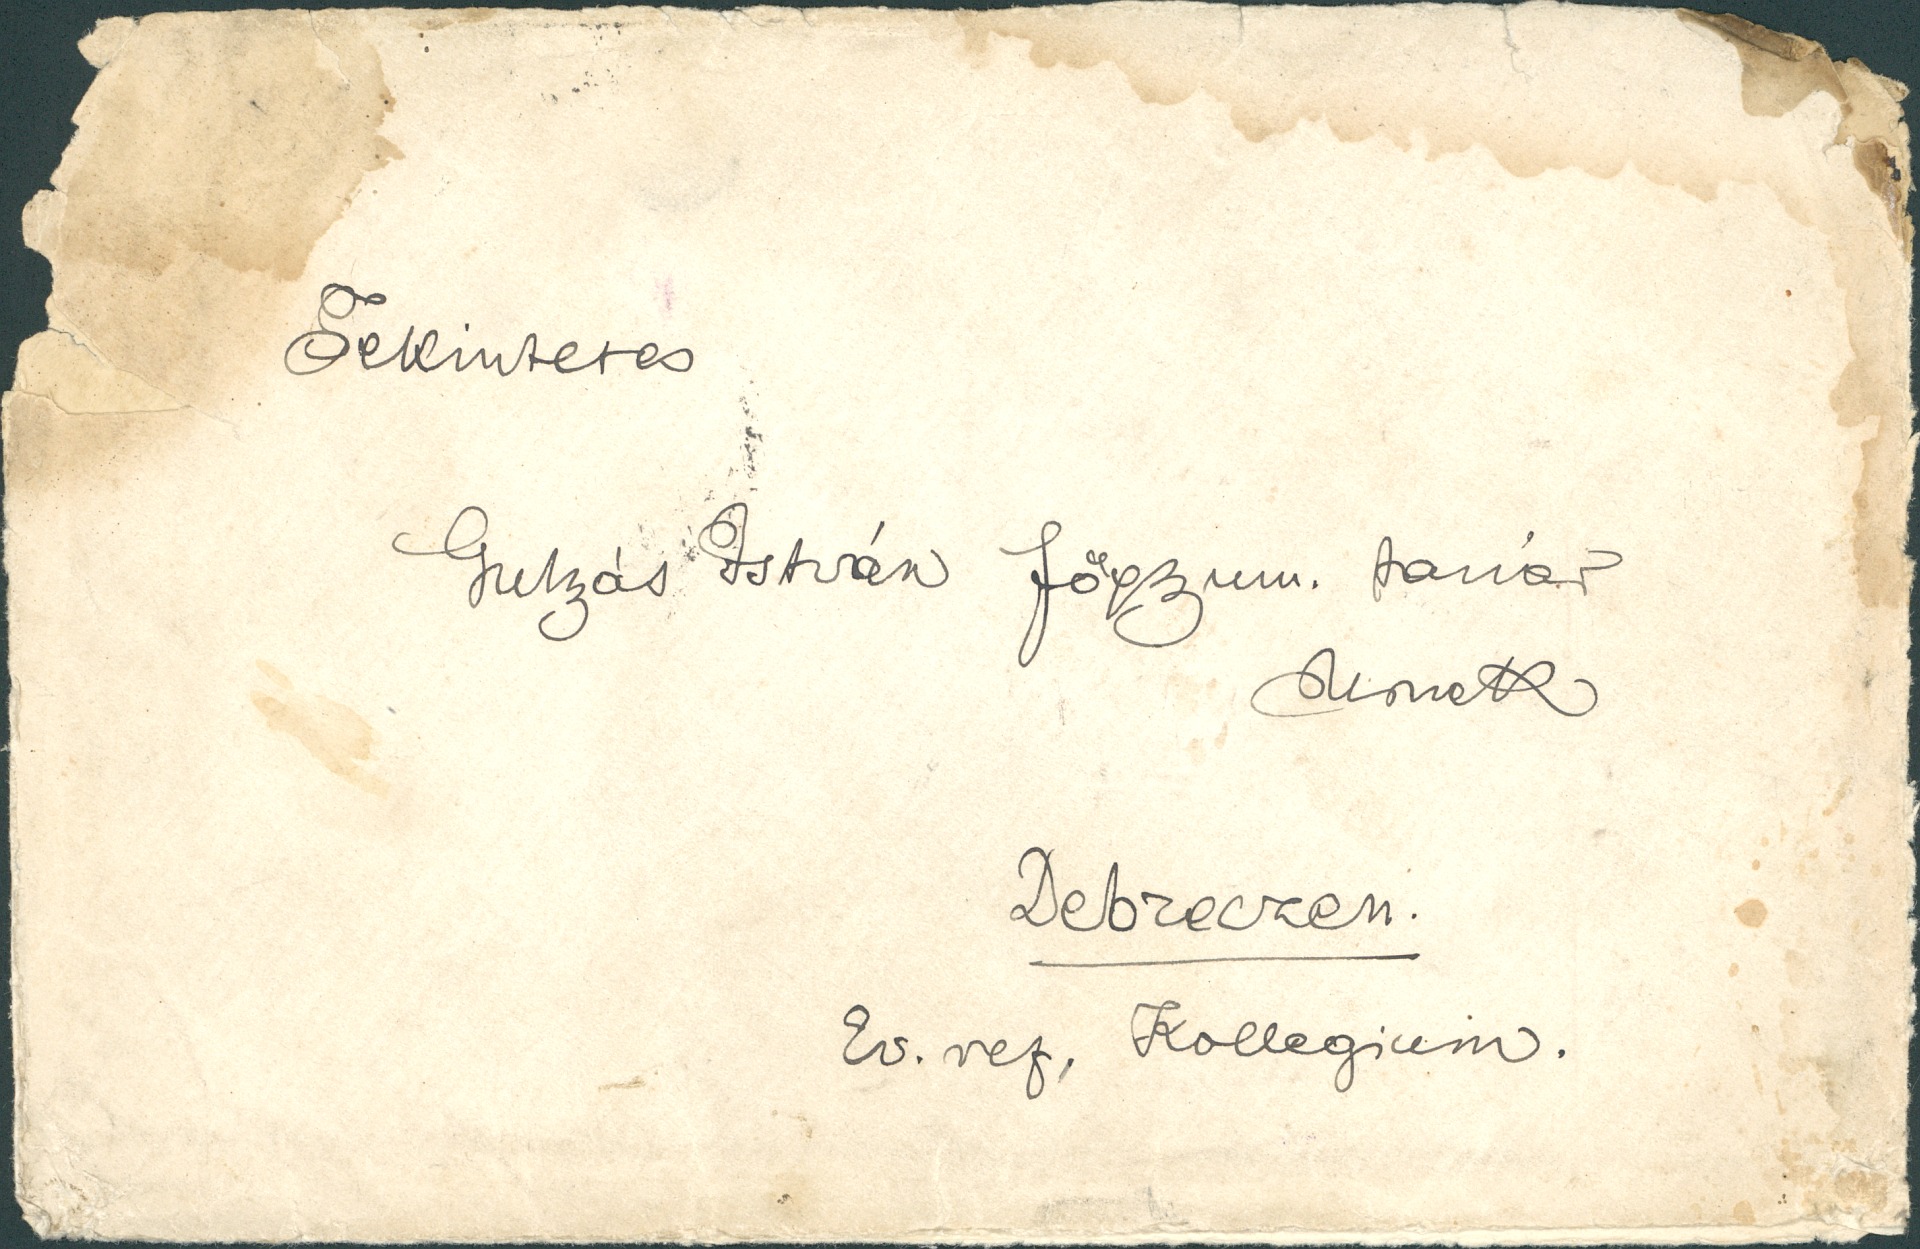 Tekintetes
Gulyás István főgymn. tanár
Úrnak
Debreczen.
Ev. ref. Kollegium.